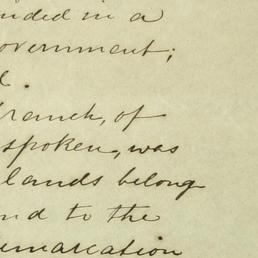 nded in a
overnment;
d.
ranch, of
spoken, was
lands belong
nd to the
emarcation